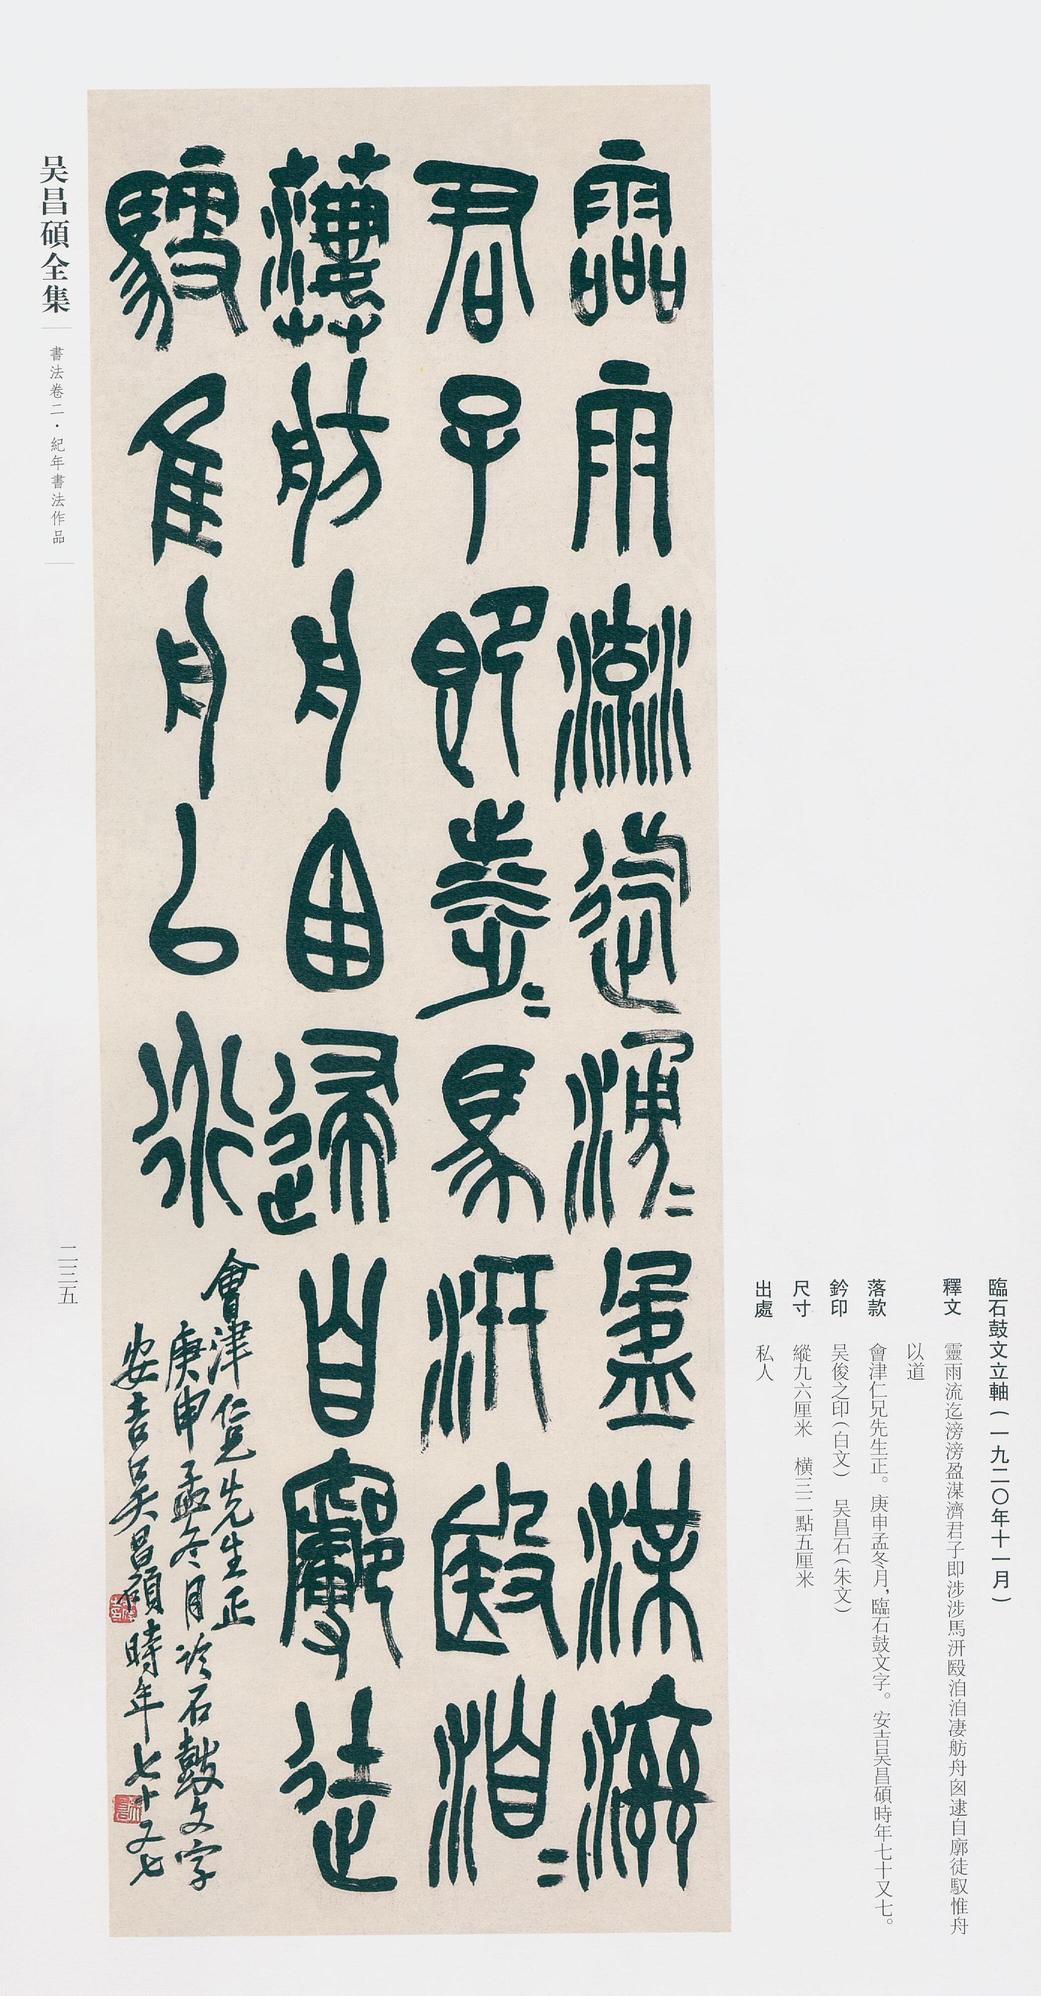 臨石鼓文立軸(一九二〇年十一月)
釋文 靈雨流迄滂滂盈渫濟君子即涉涉馬汧殹洎洎淒舫舟囪逮自廓徒馭惟舟
以道
落款 會津仁兄先生正。庚申孟冬月,臨石鼓文字。安吉吴昌碩時年七十又七。
鈐印 吴俊之印(白文) 吴昌石(朱文)
尺寸 縱九六厘米 橫三二點五厘米
出處 私人
靈雨流迄滂=盈渫濟
君子即涉=馬汧殹洎=
淒舫舟囪逮自廓徒
馭隹舟以道
會津仁兄先生正
庚申孟冬月臨石鼓文字
安吉吳昌碩時年七十又七
吴昌碩全集
書法卷二·紀年書法作品
二三五